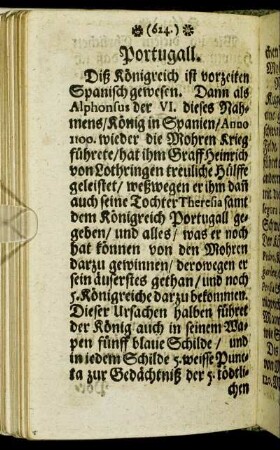 (624.)
Portugall.
Diß Königreich ist vorzeiten
Spanisch gewesen. Dann als
Alphonsus der VI. dieses Nah-
mens/König in Spanien/Anno
1100. wieder die Mohren Krieg
führete/hat ihm Graff Heinrich
von Lothringen treuliche Hülffe
geleistet/ weßwegen er ihm dañ
auch seine Tochter Theresia samt
dem Königreich Portugall ge-
geben/ und alles/ was er noch
hat können von den Mohren
darzu gewinnen/ derowegen er
sein äuserstes gethan/ und noch
5. Königreiche darzu bekommen.
Dieser Ursachen halben führet
der König auch in seinem Wa-
pen fünff blaue Schilde/ und
in iedem Schilde 5. weisse Punc-
ta zur Gedächtniß der 5. tödtli-
chen